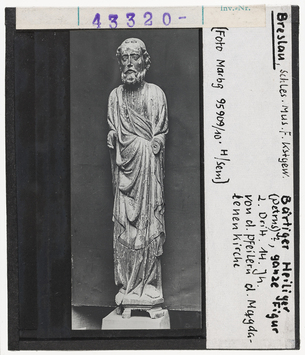 43320-
Inv.-Nr.
Breslau, Schles. Mus. f. Kstgew.
Bärtiger Heiliger
(Petrus)?, ganze Figur
2. Dritt. 14. Jh.
von d. Pfeilern d. Magda-
lenenkirche
[Foto Marbg 95909/10. H/Sem]